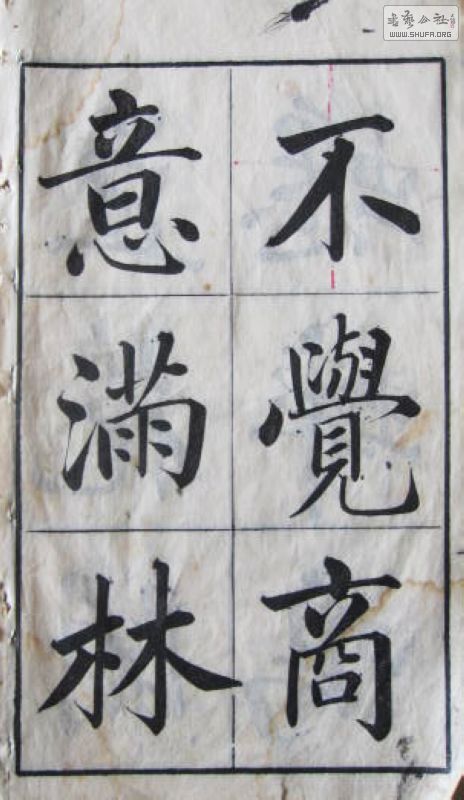 不覺商
意滿林
書藝公社
WWW.SHUFA.ORG